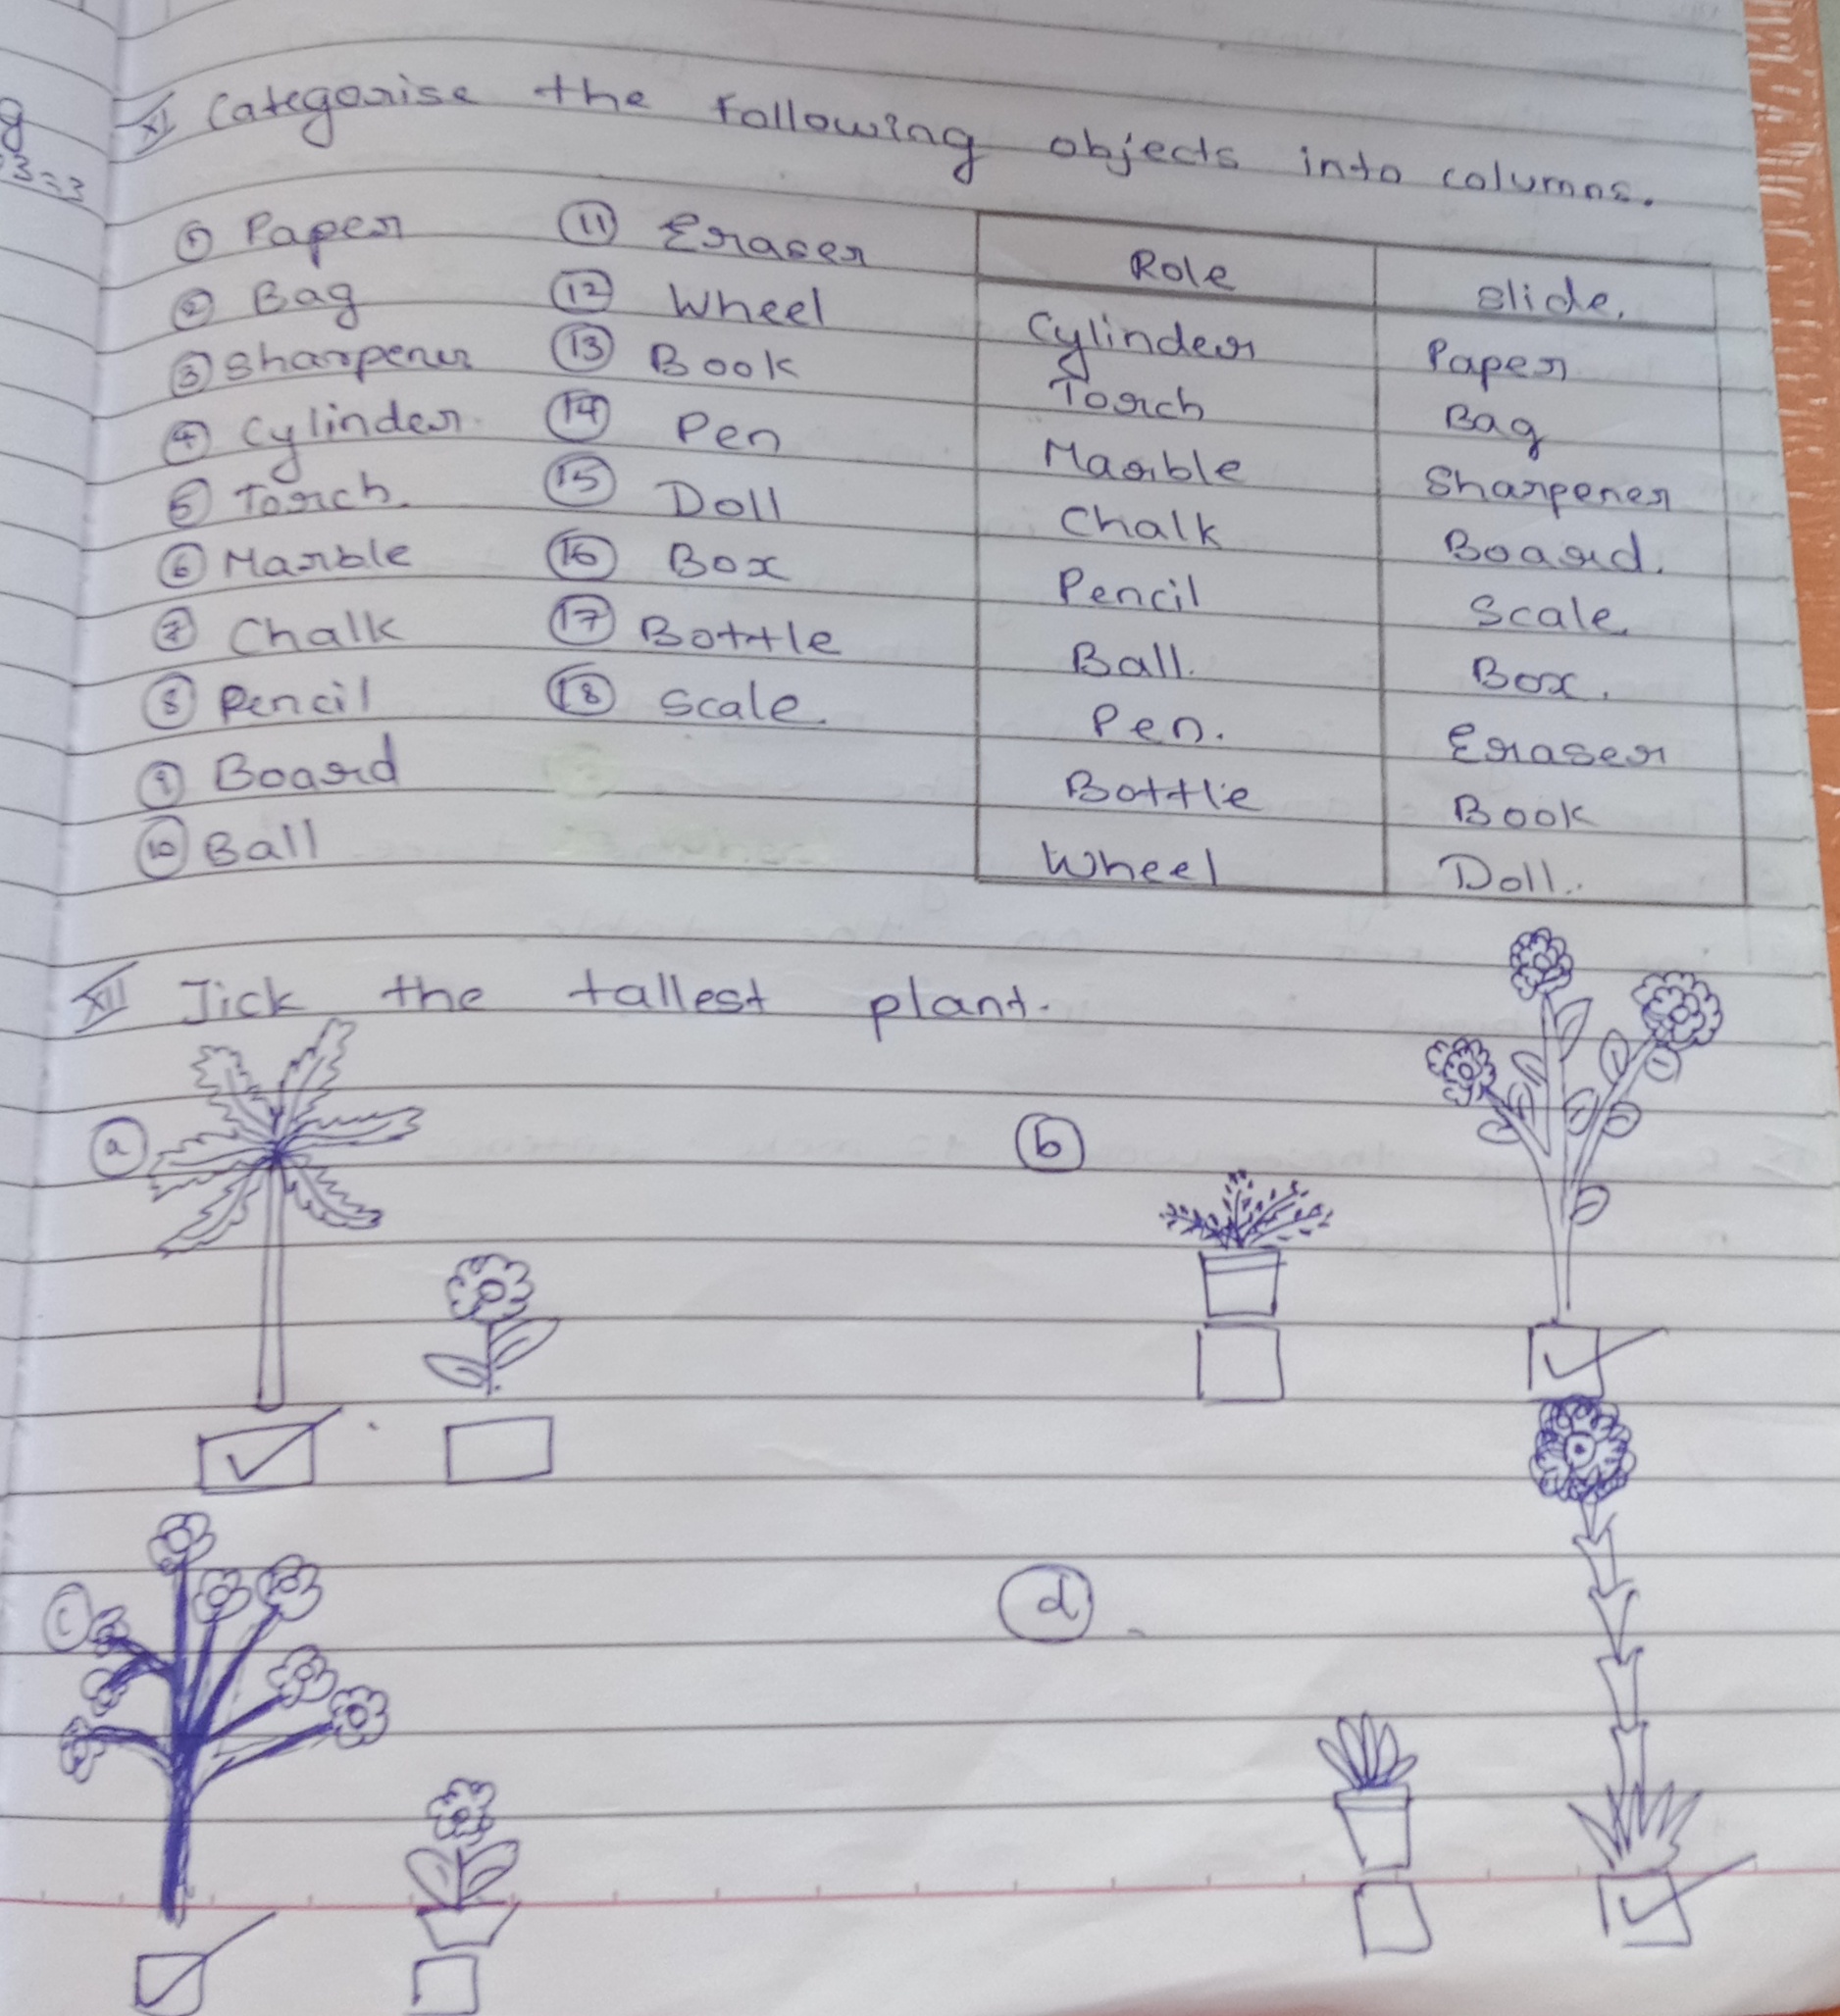 g
3=3
XI Categorise the following objects into columns.
① Paper ⑪ Eraser
② Bag ⑫ Wheel
③ Sharpener ⑬ Book
④ Cylinder ⑭ Pen
⑤ Torch. ⑮ Doll
⑥ Marble ⑯ Box
⑦ Chalk ⑰ Bottle
⑧ Pencil ⑱ Scale.
⑨ Board
⑩ Ball
Role Slide.
Cylinder Paper
Torch Bag
Marble Sharpener
Chalk Board.
Pencil Scale
Ball. Box.
Pen. Eraser
Bottle Book
Wheel Doll.
XII Tick the tallest plant.
ⓐ ⓑ
ⓒ ⓓ